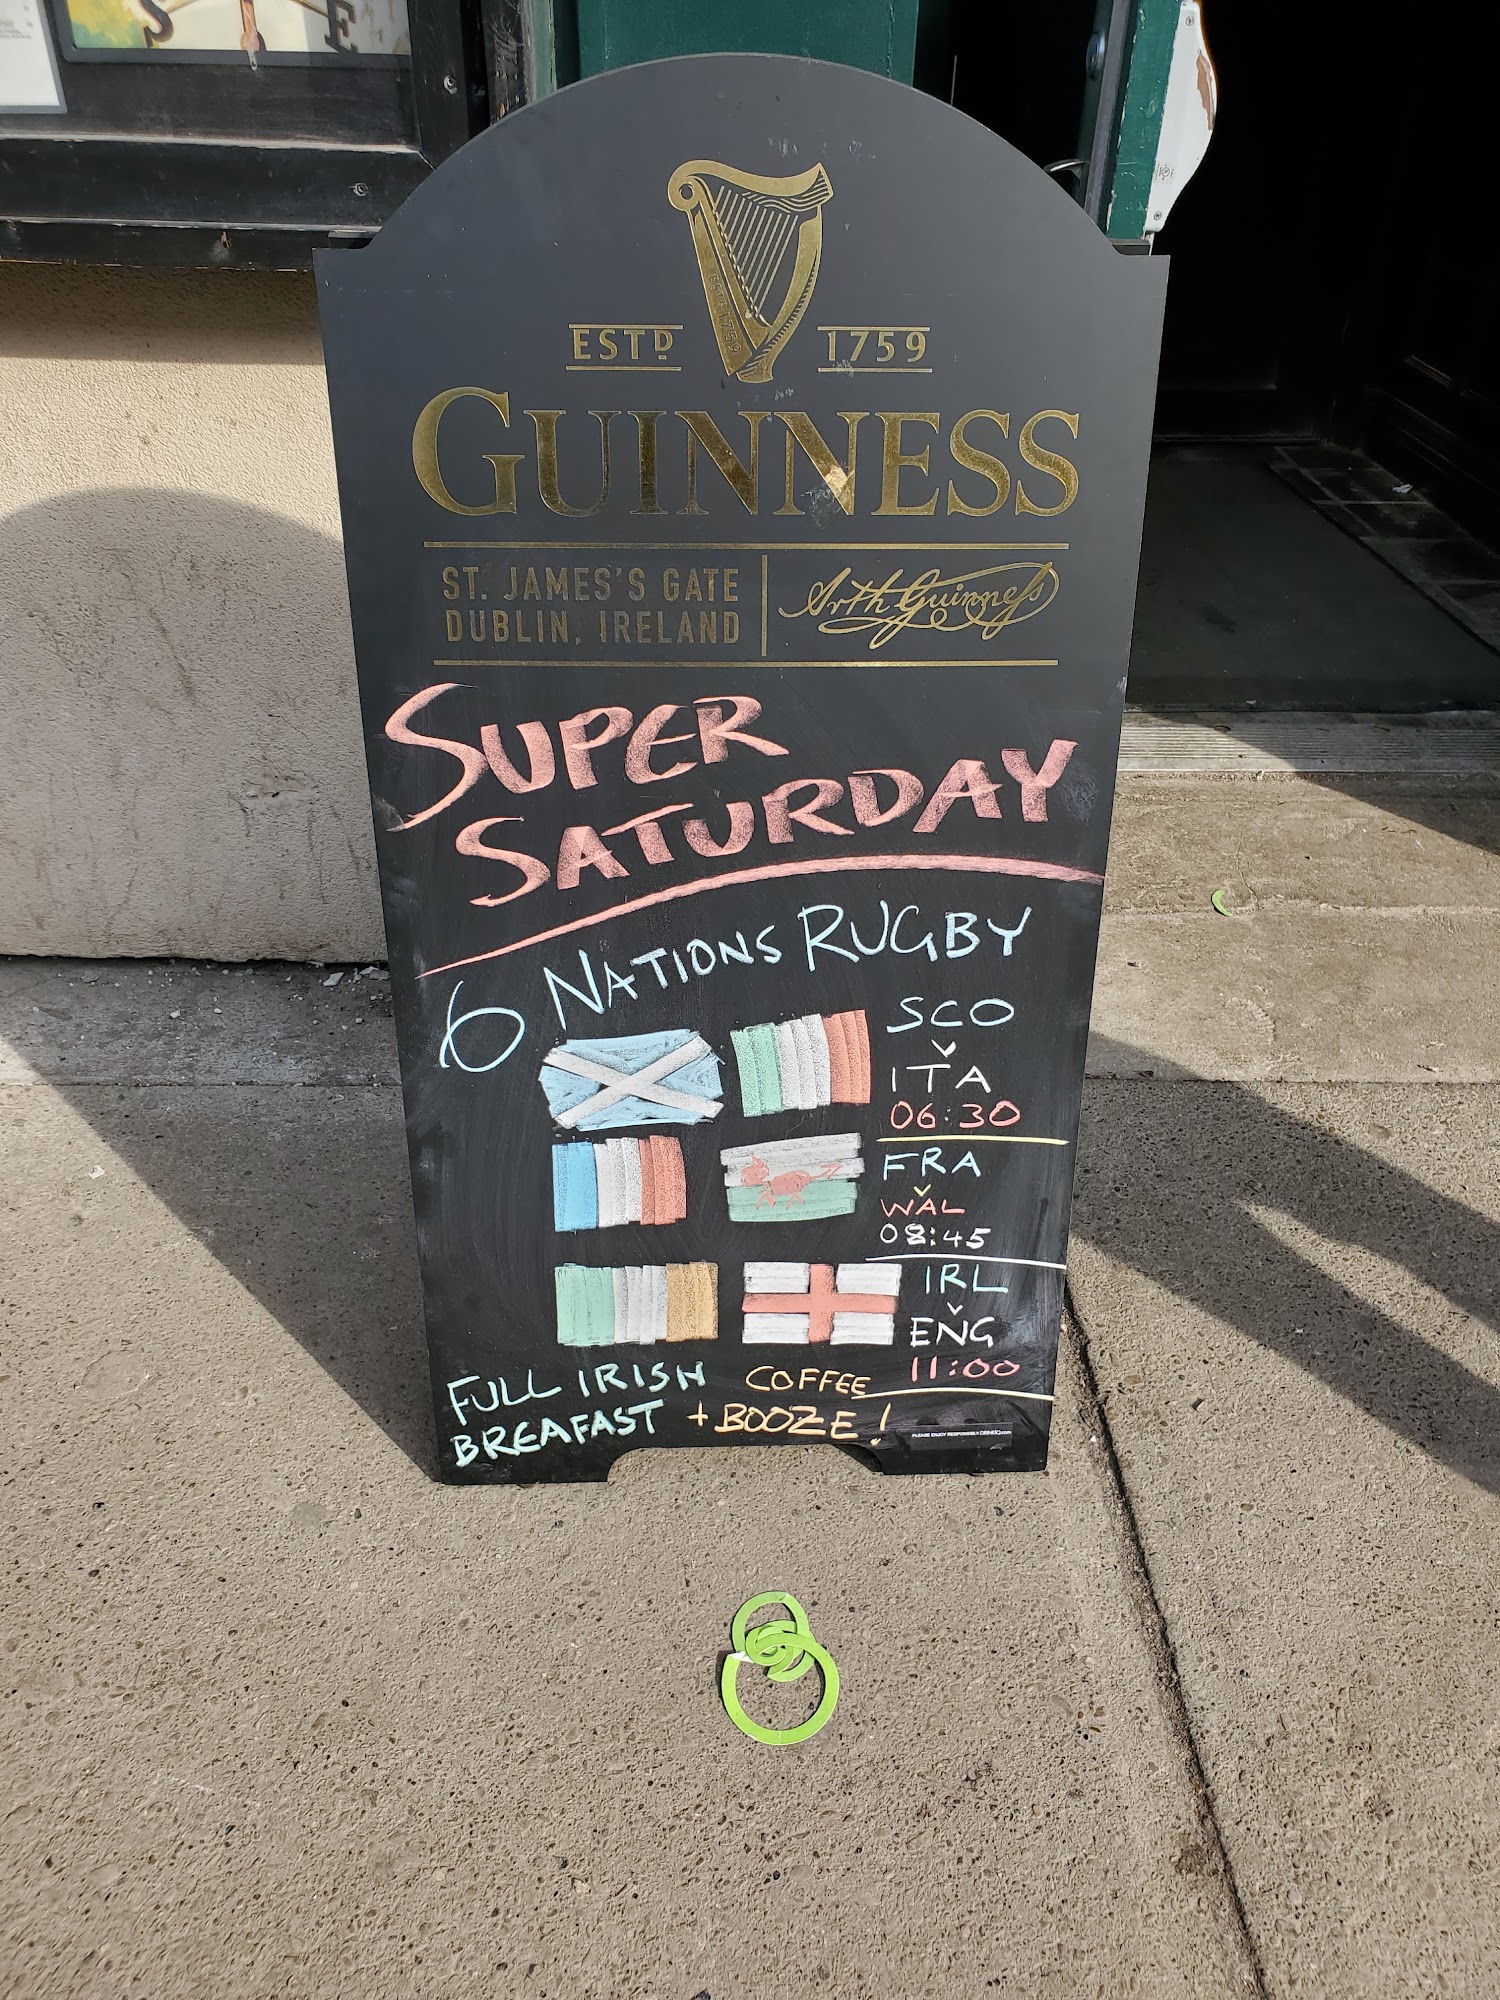 S E
ESTD 1759
EST. 1759
GUINNESS
ST. JAMES'S GATE
DUBLIN, IRELAND
Arth Guinness
SUPER
SATURDAY
6 NATIONS RUGBY
SCO
v
ITA
06:30
FRA
v
WAL
08:45
IRL
v
ENG
11:00
FULL IRISH
BREAFAST
COFFEE
+ BOOZE!
PLEASE ENJOY RESPONSIBLY. DRINKiQ.com